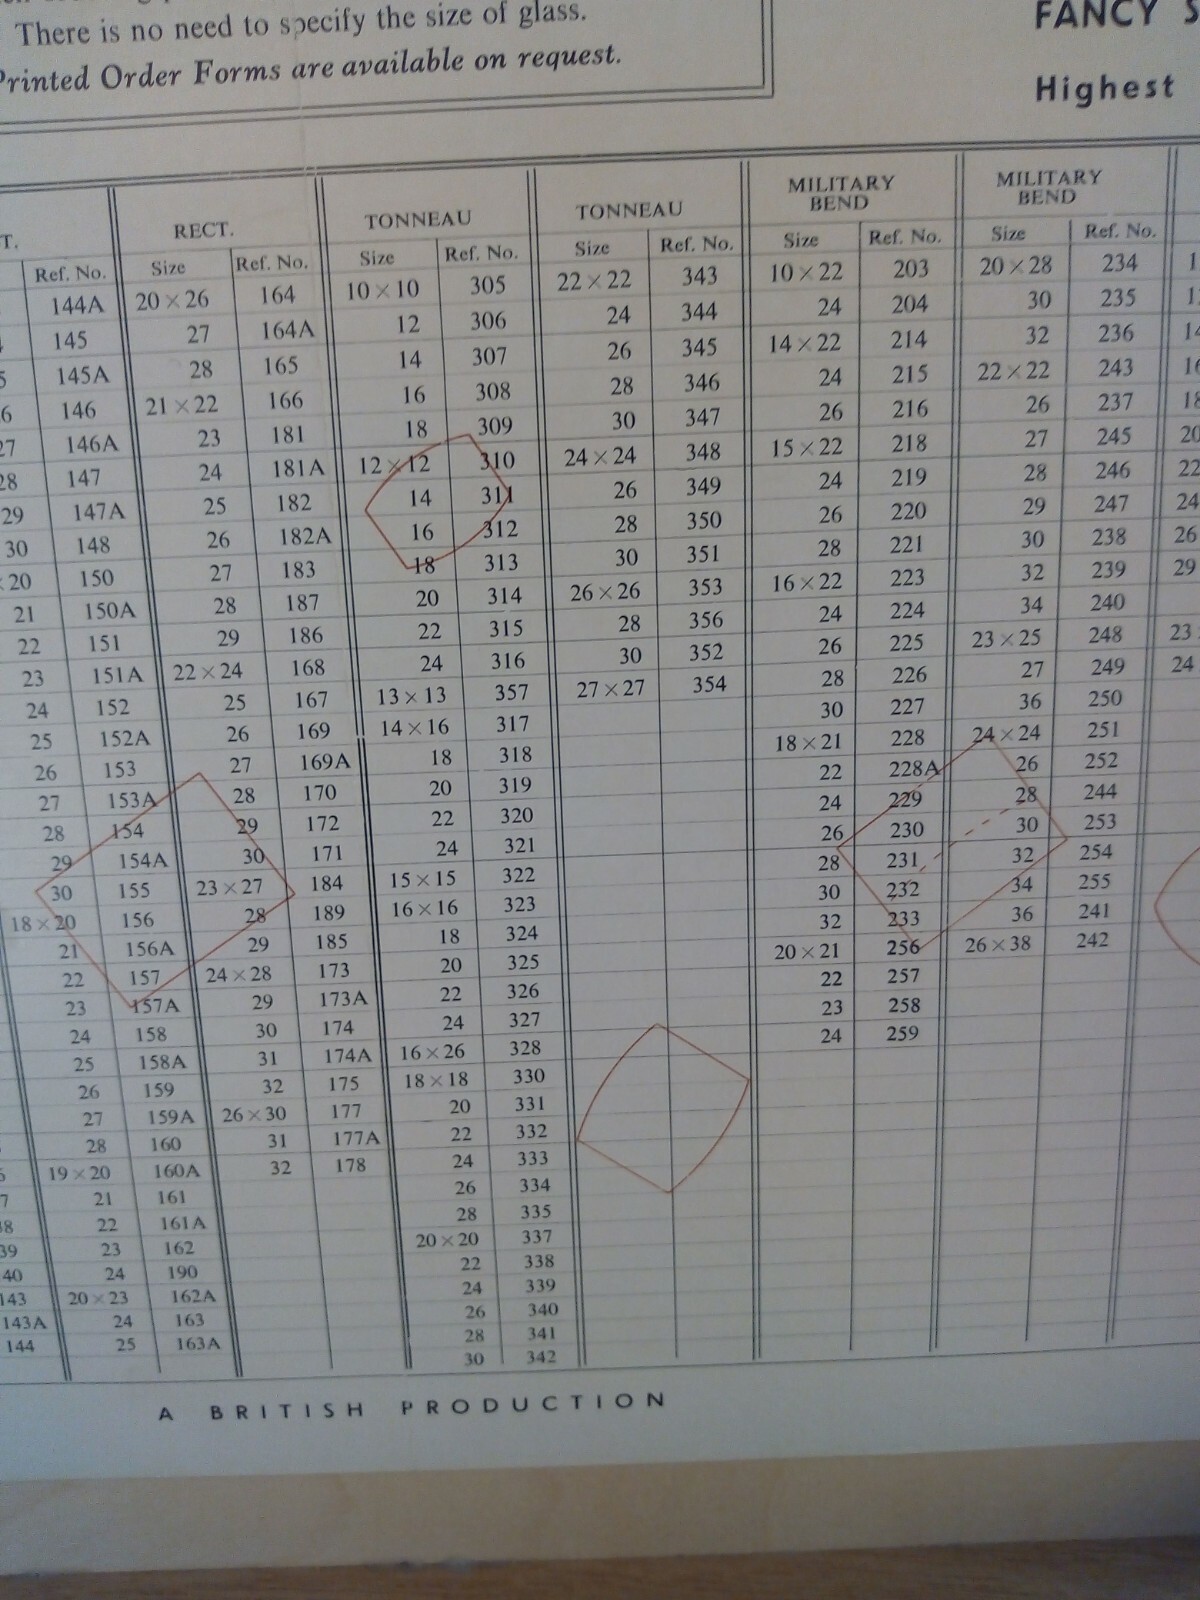 There is no need to specify the size of glass.
Printed Order Forms are available on request.
FANCY S
Highest
T.
Ref. No.
144A
145
5 145A
6 146
27 146A
28 147
29 147A
30 148
× 20 150
21 150A
22 151
23 151A
24 152
25 152A
26 153
27 153A
28 154
29 154A
30 155
18 × 20 156
21 156A
22 157
23 157A
24 158
25 158A
26 159
27 159A
28 160
19 × 20 160A
21 161
22 161A
23 162
24 190
20 × 23 162A
24 163
25 163A
7
38
39
40
143
143A
144
RECT.
Size Ref. No.
20 × 26 164
27 164A
28 165
21 × 22 166
23 181
24 181A
25 182
26 182A
27 183
28 187
29 186
22 × 24 168
25 167
26 169
27 169A
28 170
29 172
30 171
23 × 27 184
28 189
29 185
24 × 28 173
29 173A
30 174
31 174A
32 175
26 × 30 177
31 177A
32 178
TONNEAU
Size Ref. No.
10 × 10 305
12 306
14 307
16 308
18 309
12 × 12 310
14 311
16 312
18 313
20 314
22 315
24 316
13 × 13 357
14 × 16 317
18 318
20 319
22 320
24 321
15 × 15 322
16 × 16 323
18 324
20 325
22 326
24 327
16 × 26 328
18 × 18 330
20 331
22 332
24 333
26 334
28 335
20 × 20 337
22 338
24 339
26 340
28 341
30 342
TONNEAU
Size Ref. No.
22 × 22 343
24 344
26 345
28 346
30 347
24 × 24 348
26 349
28 350
30 351
26 × 26 353
28 356
30 352
27 × 27 354
MILITARY
BEND
Size Ref. No.
10 × 22 203
24 204
14 × 22 214
24 215
26 216
15 × 22 218
24 219
26 220
28 221
16 × 22 223
24 224
26 225
28 226
30 227
18 × 21 228
22 228A
24 229
26 230
28 231
30 232
32 233
20 × 21 256
22 257
23 258
24 259
MILITARY
BEND
Size Ref. No.
20 × 28 234
30 235
32 236
22 × 22 243
26 237
27 245
28 246
29 247
30 238
32 239
34 240
23 × 25 248
27 249
36 250
24 × 24 251
26 252
28 244
30 253
32 254
34 255
36 241
26 × 38 242
14
16
18
20
22
24
26
29
23
24
A BRITISH PRODUCTION